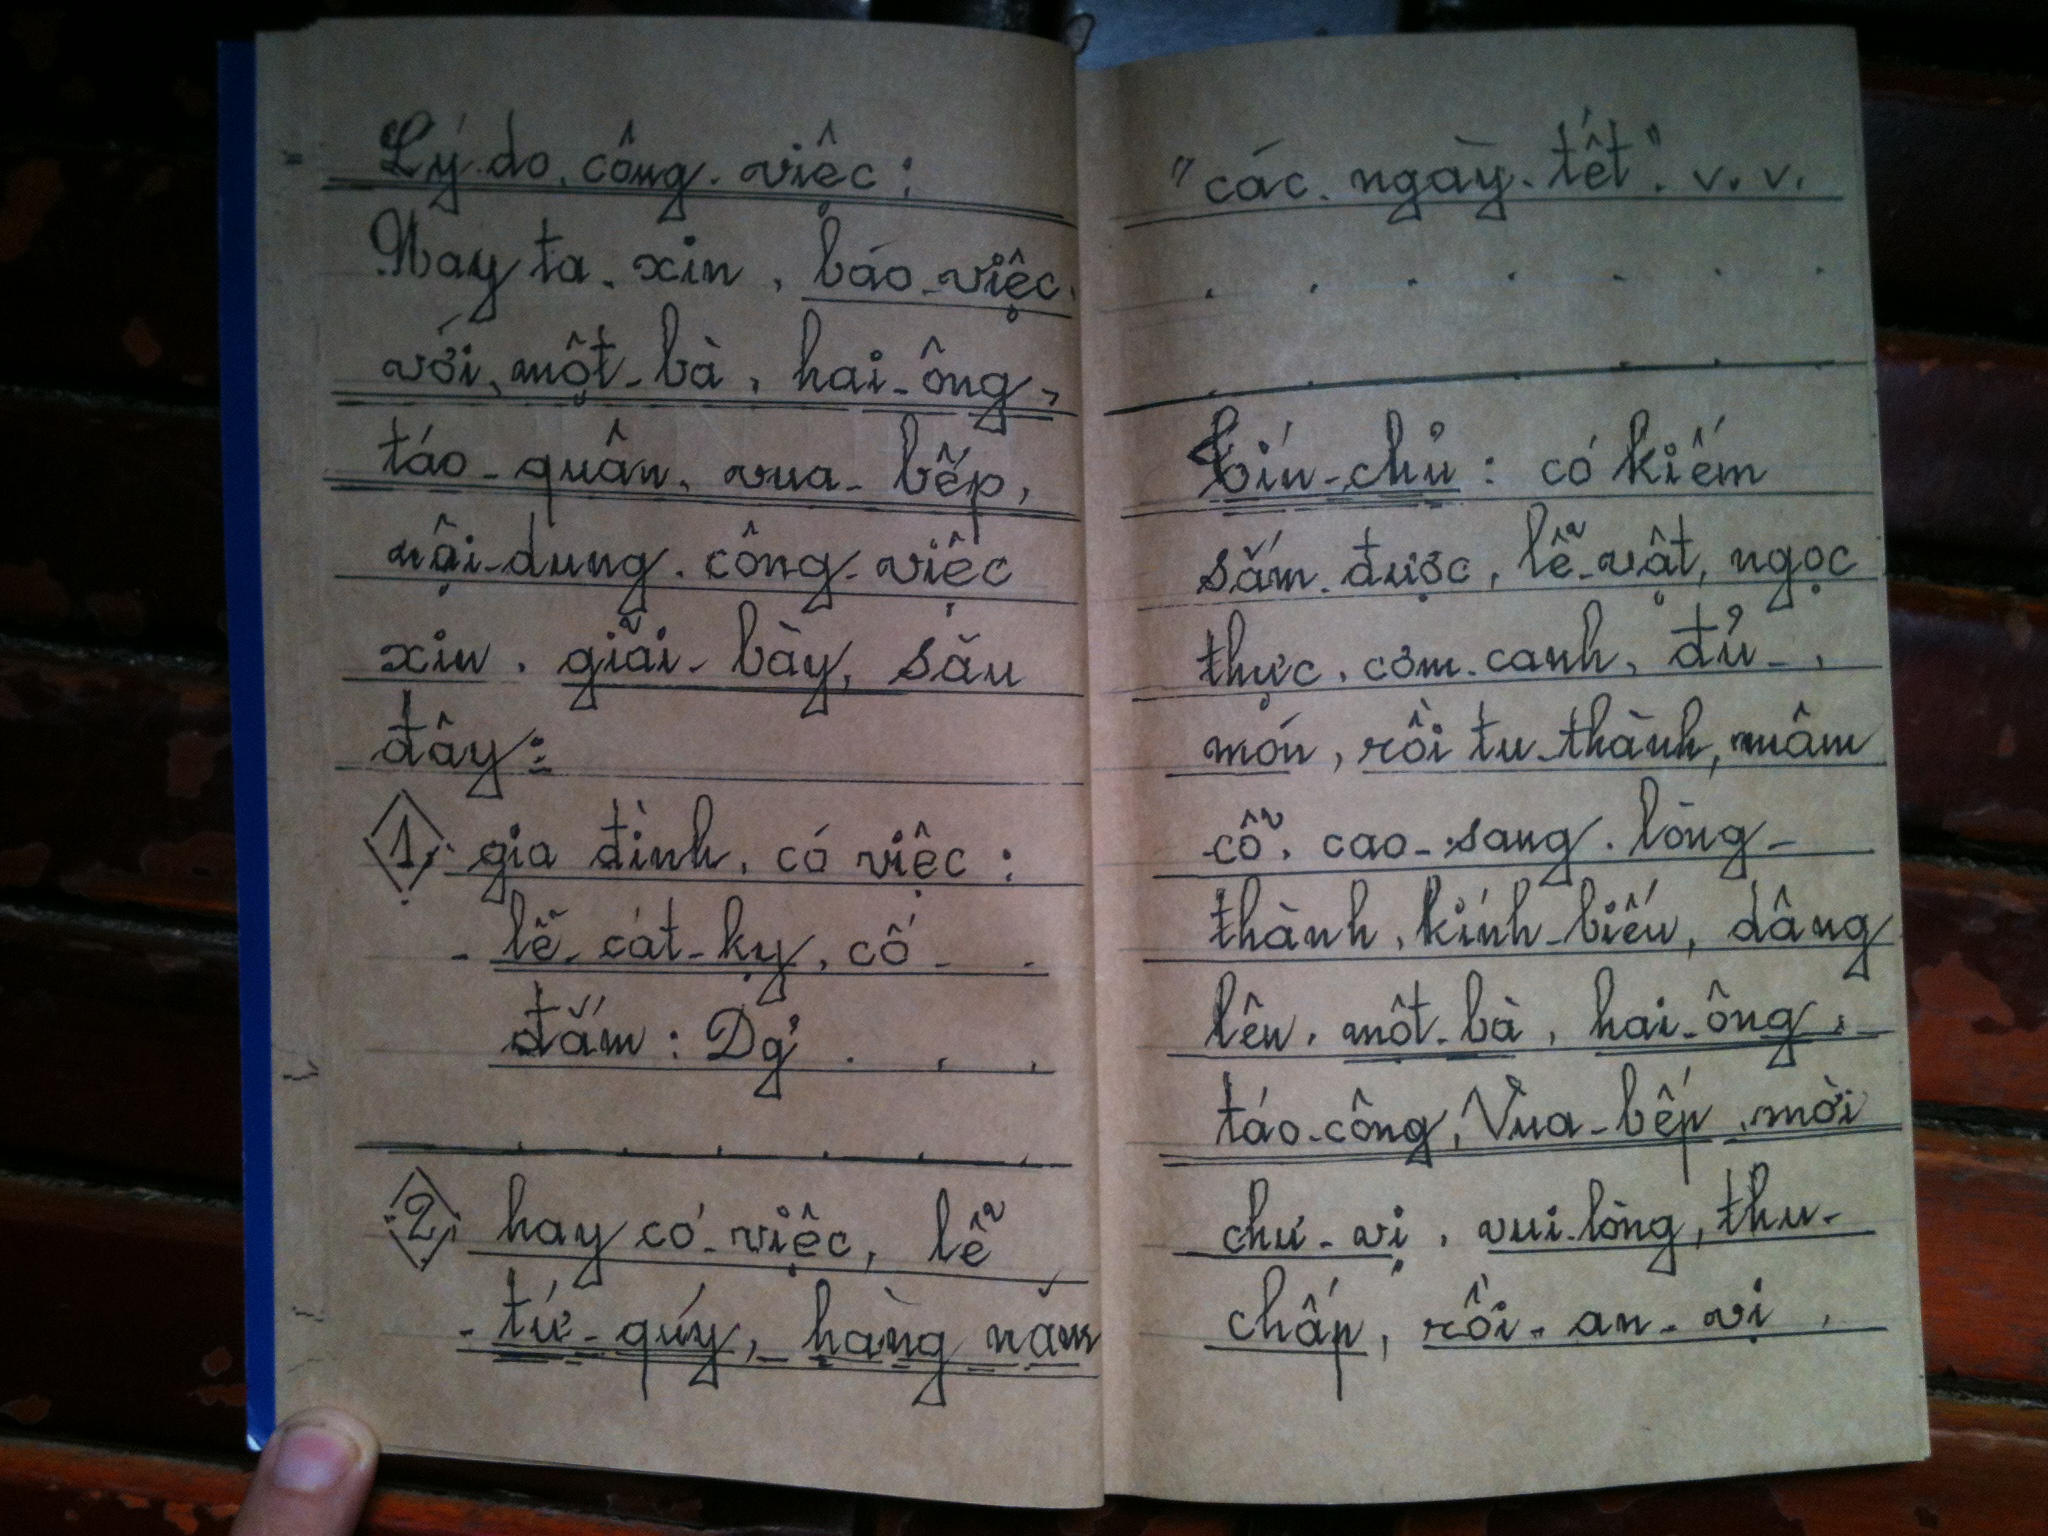 Lý do công việc:
Nay ta xin, báo việc,
với, một bà, hai ông,
táo quân, vua bếp,
nội dung công việc
xin, giãi bày, său
đây:
1, gia đình, có việc:
- lễ cát kỵ, cố
đám: Dg
2, hay có việc, lễ
- tứ quý, hàng năm
"các ngày tết". v.v.
Tín chủ: có kiếm
sắm được, lễ vật, ngọc
thực, cơm canh, đủ
món, rồi tu thành, mâm
cỗ, cao sang, lòng
thành, kính biếu, dâng
lên, một bà, hai ông,
táo công, Vua bếp, mời
chư vị, vui lòng, thu
chấp, rồi an vị,